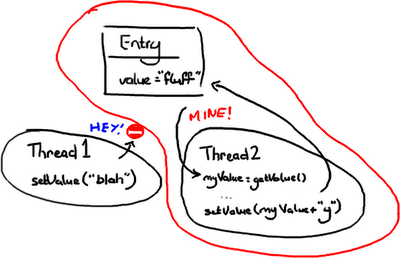 Entry
value="fluff"
HEY!
MINE!
Thread 1
setValue("blah")
Thread2
myValue=getValue()
...
setValue(myValue+"y")